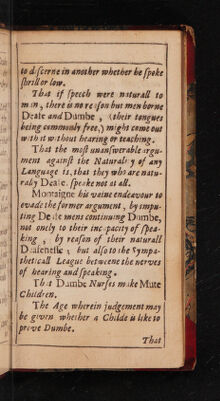 to discerne in another whether he spoke
shrill or low.
That if speech were naturall to
man, there is no reason but men borne
Deafe and Dumbe, (their tongues
being commonly free,) might come out
with it without hearing or teaching.
That the most unanswerable argu-
ment against the Naturality of any
Language is, that they who are natu-
rally Deafe, speake not at all.
Montaigne his vaine endeavour to
evade the former argument, by impu-
ting Deafe mens continuing Dumbe,
not onely to their incapacity of spea-
king, by reason of their naturall
Deafenesse, but also to the Sympa-
theticall League betweene the nerves
of hearing and speaking.
That Dumbe Nurses make Mute
Children.
The Age wherein judgement may
be given whether a Childe is like to
prove Dumbe.
That